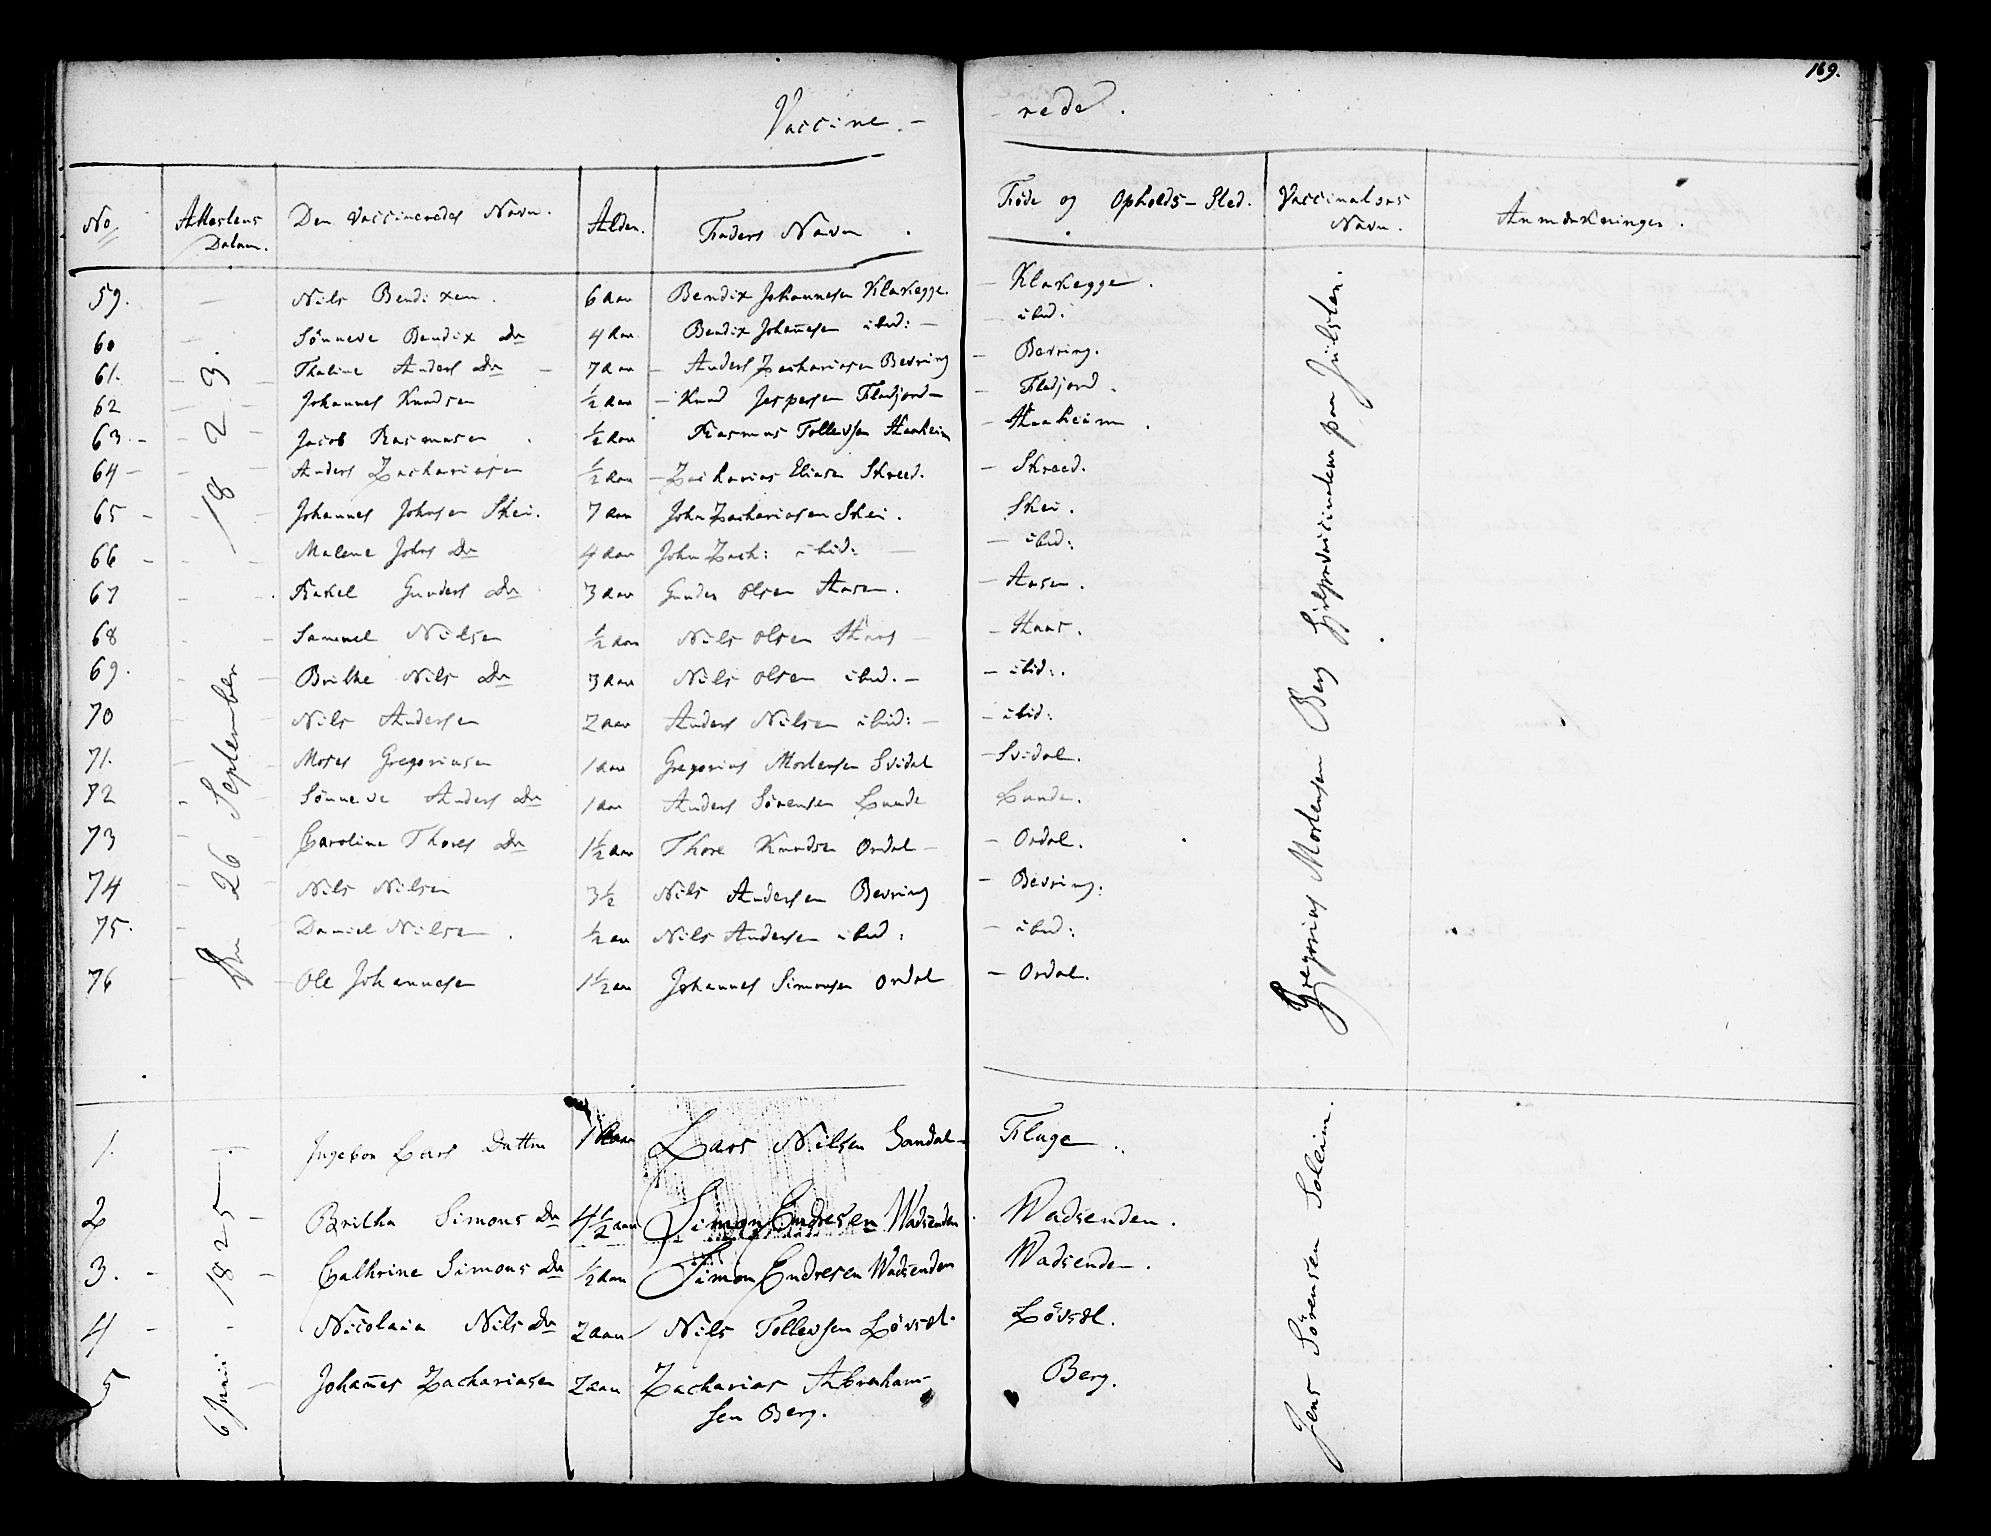 169.
Vaccine.- - rede.
No Attestens Datum. Den Vaccineredes Navn. Alder. Faders Navn. Föde og Opholds-Sted. Vaccinators Navn. Anmærkninger.
59. Nils Bendixen. 6 aar Bendix Johannesen Klakegge. - Klakegge.
60 Sönneve Bendix Dr 4 aar Bendix Johan̄esen ibid: - ibid:
61. Thaline Anders Dr - 7 aar - Anders Zachariasen Bevring - Bevring.
62 Johannes Knudsen ½ aar - Knud Jespersen Fladjord - Fladjord.
63.- Jacob Rasmusen ½ aar Rasmus Tollevsen Haaheim - Haaheim.
64- Anders Zachariasen ½ aar - Zacharias Eliasen Skreed. - Skreed.
65 - Johannes Johnsen Skei. 7 aar John Zachariasen Skei. Skei.
66 - Malene Johns Dr 4 aar John Zach: ibid: - ibid:
67 Rakel Gunders Dr 3 aar Gunder Olsen Aasen. - Aasen.
68 Samuel Nilsen ½ aar Nils Olsen Haas - Haas.
69. Brithe Nils Dr 3 aar Nils Olsen ibid.- - ibid:.
70 Nils Andersen 2 aar Anders Nilsen ibid: - ibid:
71. Moses Gregoriusen 1 aar Gregorius Mortensen Svidal - Svidal.
72 Sönneve Anders Dr 1 aar Anders Sörensen Lunde Lunde.
73 Caroline Thores Dr 1½ aar Thore Knudsen Ordal - - Ordal.
74 Nils Nilsen 3½ Nils Andersen Bevring - Bevring:
75. Daniel Nilsen. ½ aar Nils Andersen ibid: - ibid:
76 Ole Johannesen 1½ aar Johannes Simonsen Ordal - Ordal.
Den 26 September 1823.
Gregorius Mortensen Berg Hjelpevaccinateur paa Jülster.
1. Ingebor Lars Datter 1 aar Lars Nilsen Sandal - Fluge.
2 Britha Simons Dr 4½ aar Simon Endresen Wadsenden. Wadsenden.
3. - Cathrine Simons Dr ½ aar Simon Endresen Wadsenden Wadsenden.
4 - Nicolaia Nils Dr 2 aar Nils Tollevsen Lövsdl. Lövsdl.
5 Johan̄es Zachariasen 2 aar Zacharias Abraham- Berg.
sen Berg.
6 Junii 1825
Jens Sörensen Soleim.